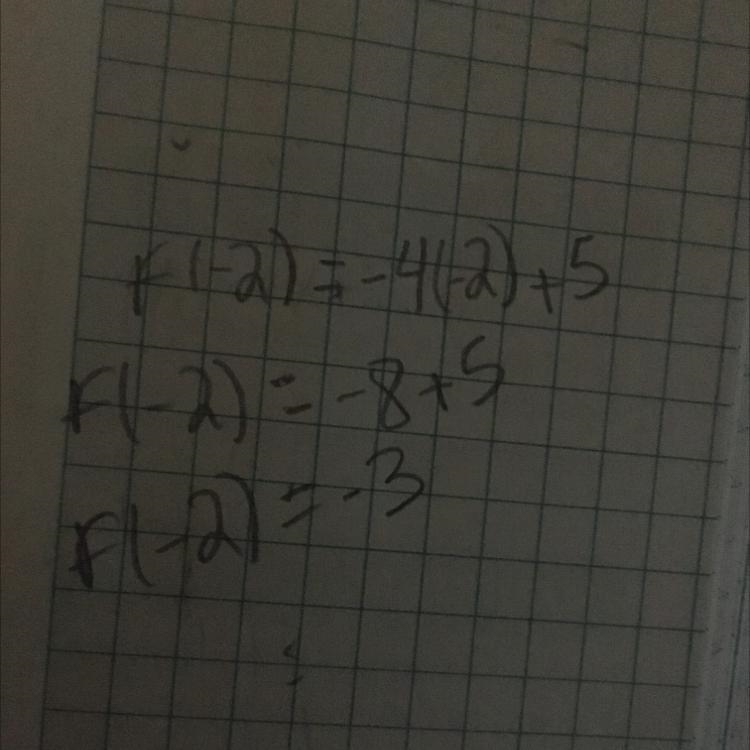 F(-2) = -4(-2) + 5
F(-2) = -8 + 5
F(-2) = -3